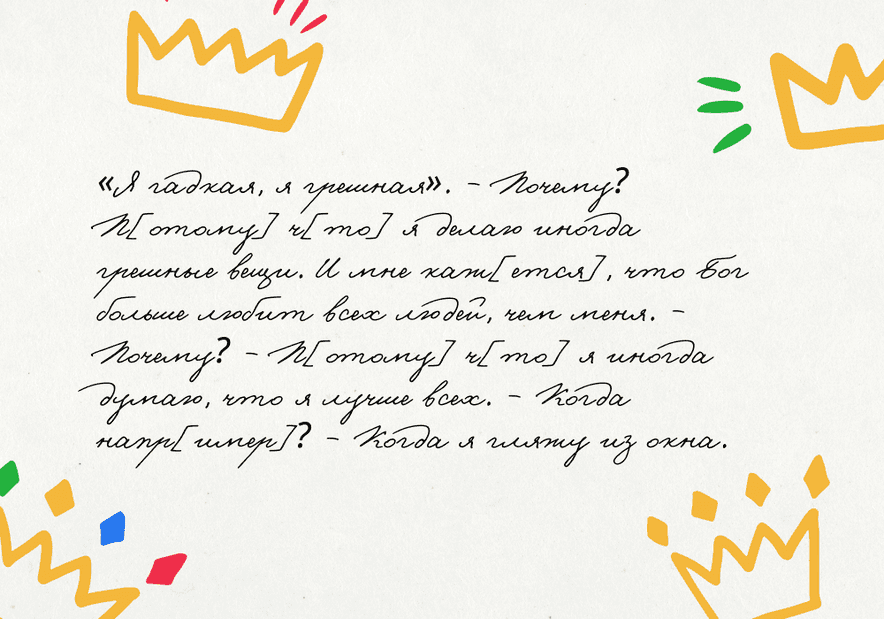 «Я гадкая, я грешная». – Почему?
П[отому] ч[то] я делаю иногда
грешные вещи. И мне каж[ется], что Бог
больше любит всех людей, чем меня. –
Почему? – П[отому] ч[то] я иногда
думаю, что я лучше всех. – Когда
напр[имер]? – Когда я гляжу из окна.